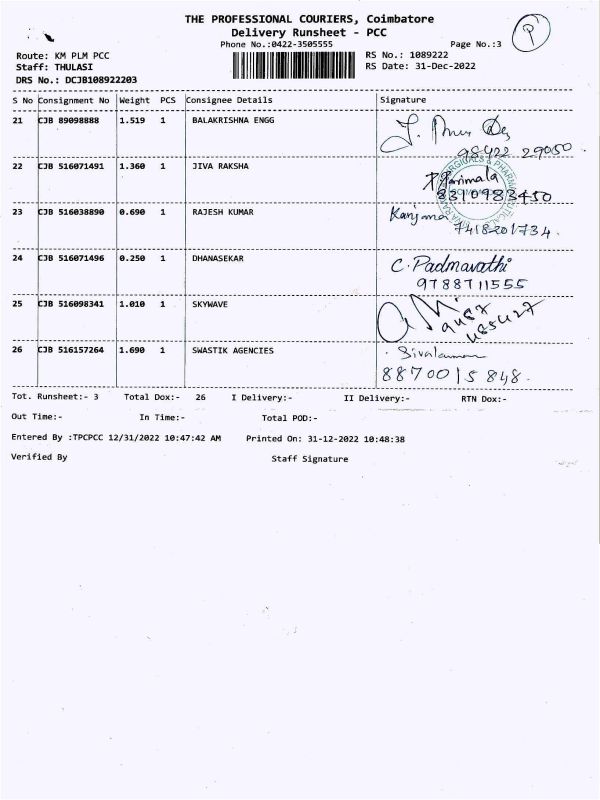 THE PROFESSIONAL COURIERS, Coimbatore
Delivery Runsheet - PCC
Phone No.:0422-3505555 Page No.:3
P
Route: KM PLM PCC RS No.: 1089222
Staff: THULASI RS Date: 31-Dec-2022
DRS No.: DCJB108922203
S No Consignment No Weight PCS Consignee Details Signature
21 CJB 89098888 1.519 1 BALAKRISHNA ENGG
98422 29050
22 CJB 516071491 1.360 1 JIVA RAKSHA P. Parimala
8310983450
23 CJB 516038890 0.690 1 RAJESH KUMAR Kanjana
7418201734.
24 CJB 516071496 0.250 1 DHANASEKAR C. Padmavathi
9788711555
25 CJB 516098341 1.010 1 SKYWAVE
26 CJB 516157264 1.690 1 SWASTIK AGENCIES
8870015848.
Tot. Runsheet:- 3 Total Dox:- 26 I Delivery:- II Delivery:- RTN Dox:-
Out Time:- In Time:- Total POD:-
Entered By :TPCPCC 12/31/2022 10:47:42 AM Printed On: 31-12-2022 10:48:38
Verified By Staff Signature